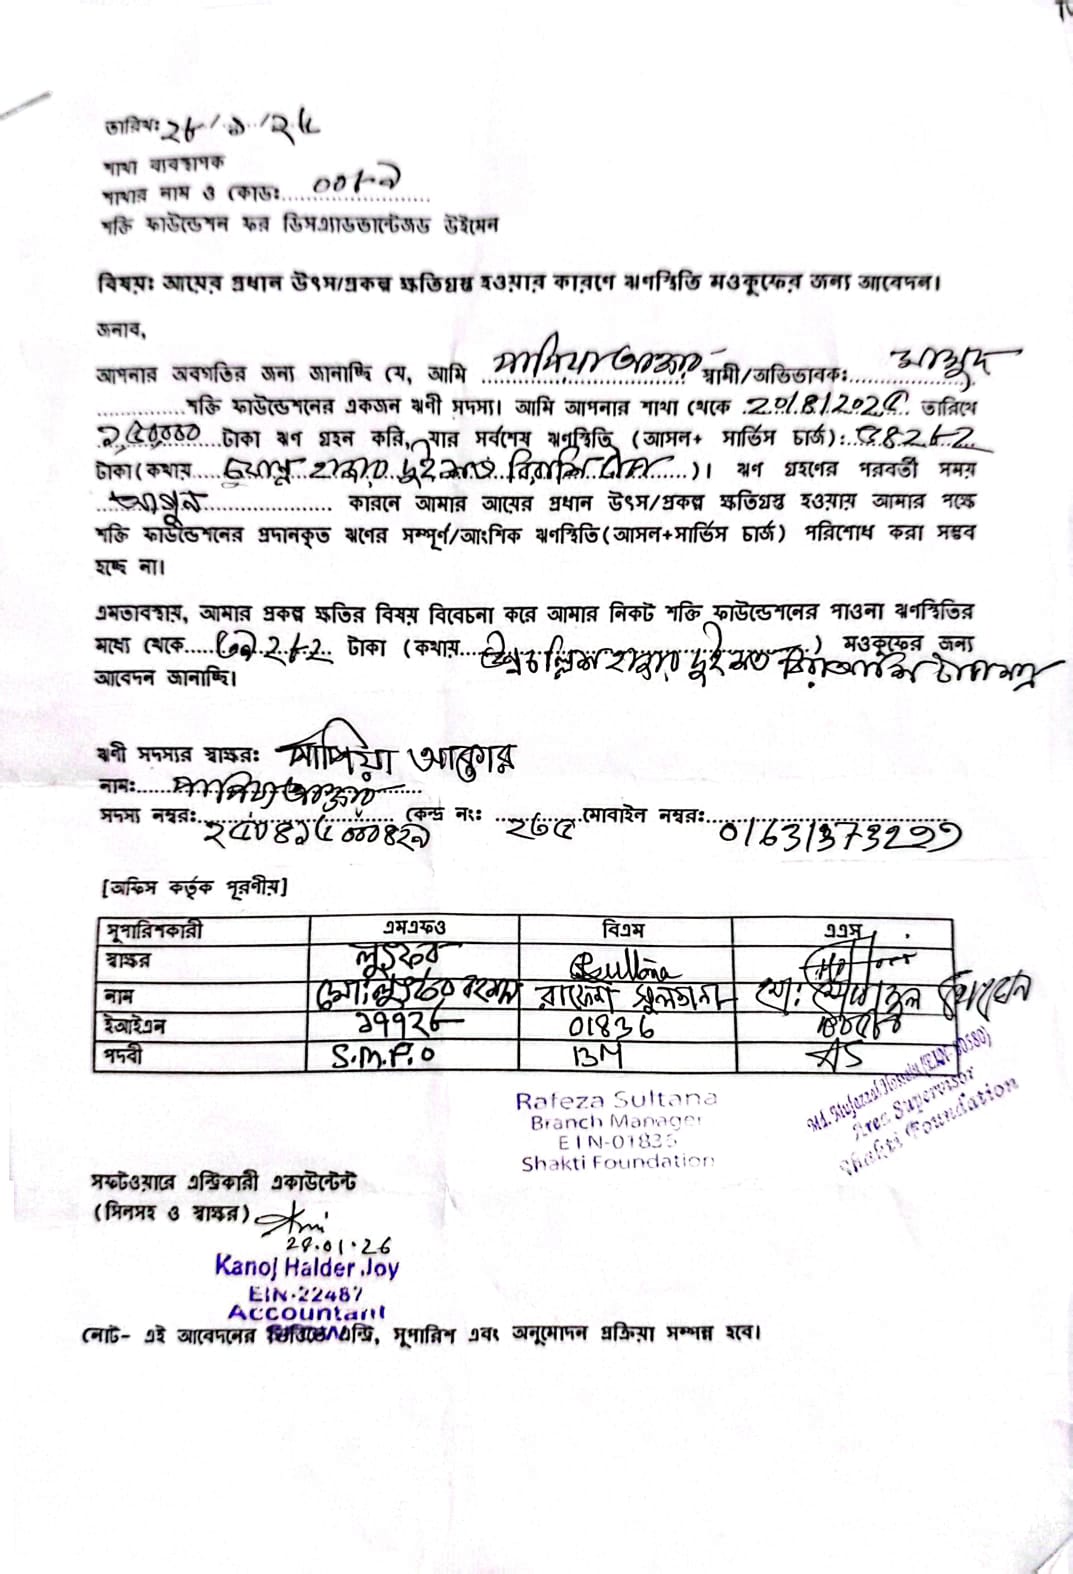 তারিখঃ ২৮/১/২৬
শাখা ব্যবস্থাপক
শাখার নাম ও কোডঃ 001-9
শক্তি ফাউন্ডেশন ফর ডিসএ্যাডভান্টেজড উইমেন
বিষয়ঃ আয়ের প্রধান উৎস/প্রকল্প ক্ষতিগ্রস্ত হওয়ার কারণে ঋণস্থিতি মওকুফের জন্য আবেদন।
জনাব,
আপনার অবগতির জন্য জানাচ্ছি যে, আমি পাপিয়া আক্তার স্বামী/অভিভাবকঃ মাসুদ
শক্তি ফাউন্ডেশনের একজন ঋণী সদস্য। আমি আপনার শাখা থেকে 20/8/2025 তারিখে
টাকা ঋণ গ্রহন করি, যার সর্বশেষ ঋণস্থিতি (আসল+ সার্ভিস চার্জ):
টাকা(কথায় হাজার দুইশত বিরাশি টাকা)। ঋণ গ্রহণের পরবর্তী সময়
আগুন কারনে আমার আয়ের প্রধান উৎস/প্রকল্প ক্ষতিগ্রস্ত হওয়ায় আমার পক্ষে
শক্তি ফাউন্ডেশনের প্রদানকৃত ঋণের সম্পূর্ণ/আংশিক ঋণস্থিতি(আসল+সার্ভিস চার্জ) পরিশোধ করা সম্ভব
হচ্ছে না।
এমতাবস্থায়, আমার প্রকল্প ক্ষতির বিষয় বিবেচনা করে আমার নিকট শক্তি ফাউন্ডেশনের পাওনা ঋণস্থিতির
মধ্যে থেকে ৩৯২৮২ টাকা (কথায় উনচল্লিশ হাজার দুইশত বিরাশি টাকা মাত্র) মওকুফের জন্য
আবেদন জানাচ্ছি।
ঋণী সদস্যর স্বাক্ষরঃ পাপিয়া আক্তার
নামঃ পাপিয়া আক্তার
সদস্য নম্বরঃ কেন্দ্র নংঃ ২৩৫ মোবাইল নম্বরঃ
[অফিস কর্তৃক পূরণীয়]
সুপারিশকারী এমএফও বিএম এএস
স্বাক্ষর লুৎফর Sultana
নাম মোঃ লুৎফর রহমান রাফেজা সুলতানা মোঃ মোফাজ্জল হোসেন
ইআইএন ১৭৭২৮ 01836
পদবী S.M.F.O BM AS
Rafeza Sultana
Branch Manager
EIN-01836
Shakti Foundation
Md. Mufazzal Hossain (EIN-00580)
Area Supervisor
Shakti Foundation
সফটওয়ারে এন্ট্রিকারী একাউন্টেন্ট
(সিলসহ ও স্বাক্ষর)
28.01.26
Kanoj Halder Joy
EIN-22487
Accountant
নোট- এই আবেদনের ভিত্তিতে এন্ট্রি, সুপারিশ এবং অনুমোদন প্রক্রিয়া সম্পন্ন হবে।